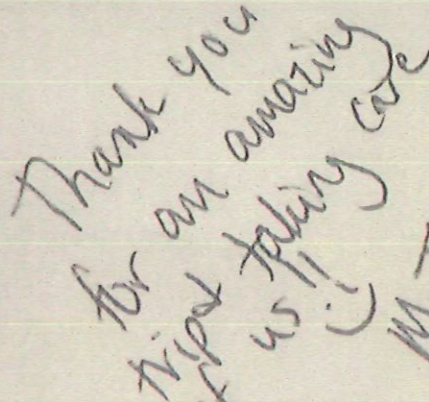 Thank you
for an amazing
trip & taking care
of us!! :)
M